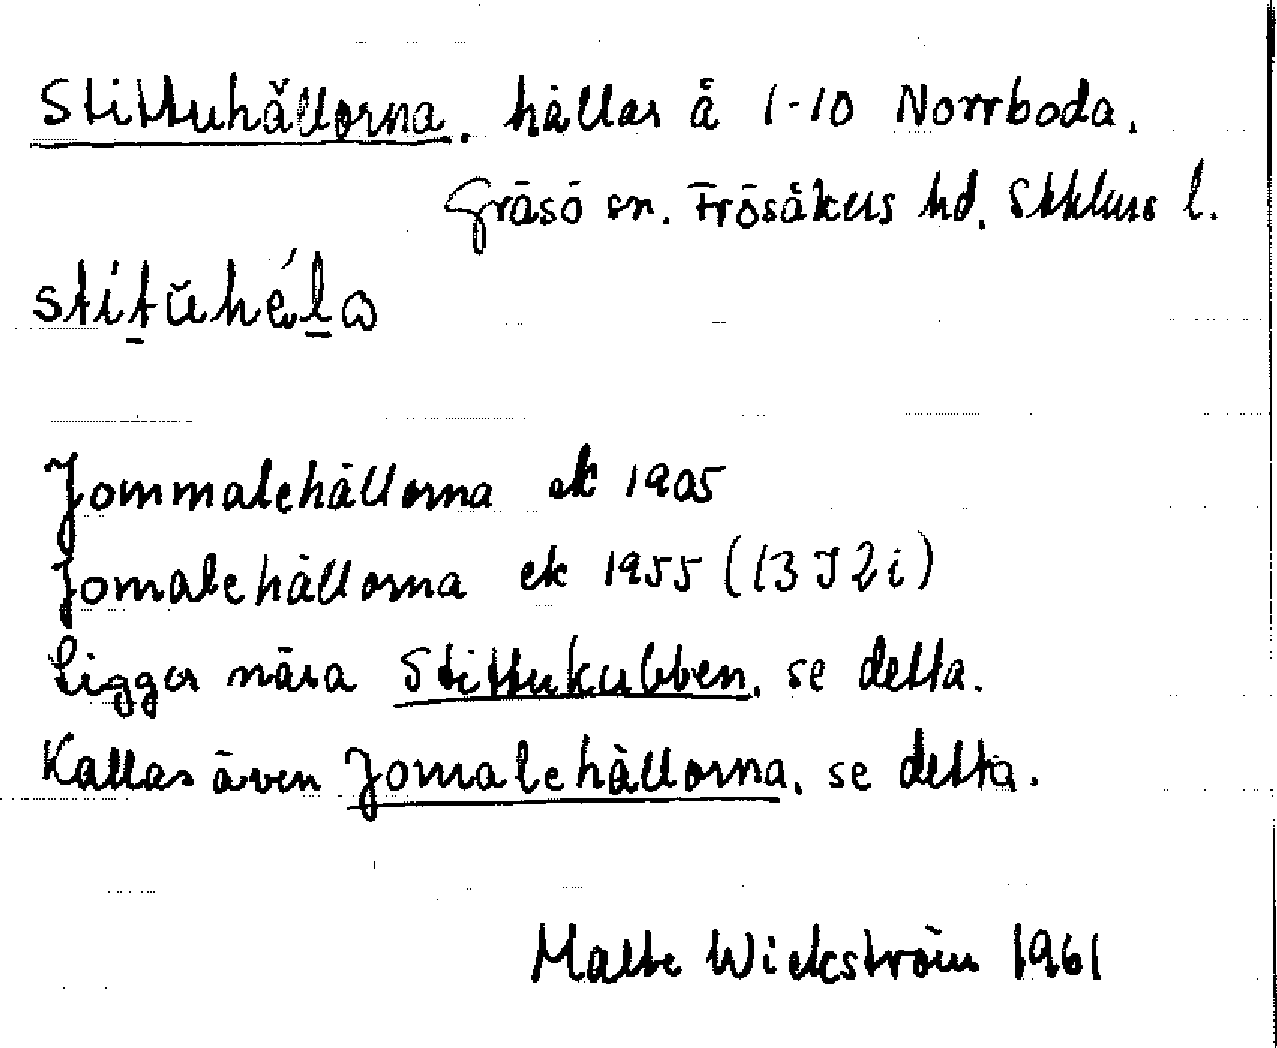 Stittuhällorna. hällar å 1-10 Norrboda.
Gräsö sn. Frösåkers hd. Sthlms l.
stítŭhéla
Jommalehällorna ek 1905
Jomalehällorna ek 1955 (13 I 2 i)
Ligger nära Stittukubben, se detta.
Kallas även Jomalehällorna, se detta.
Malte Wickström 1961